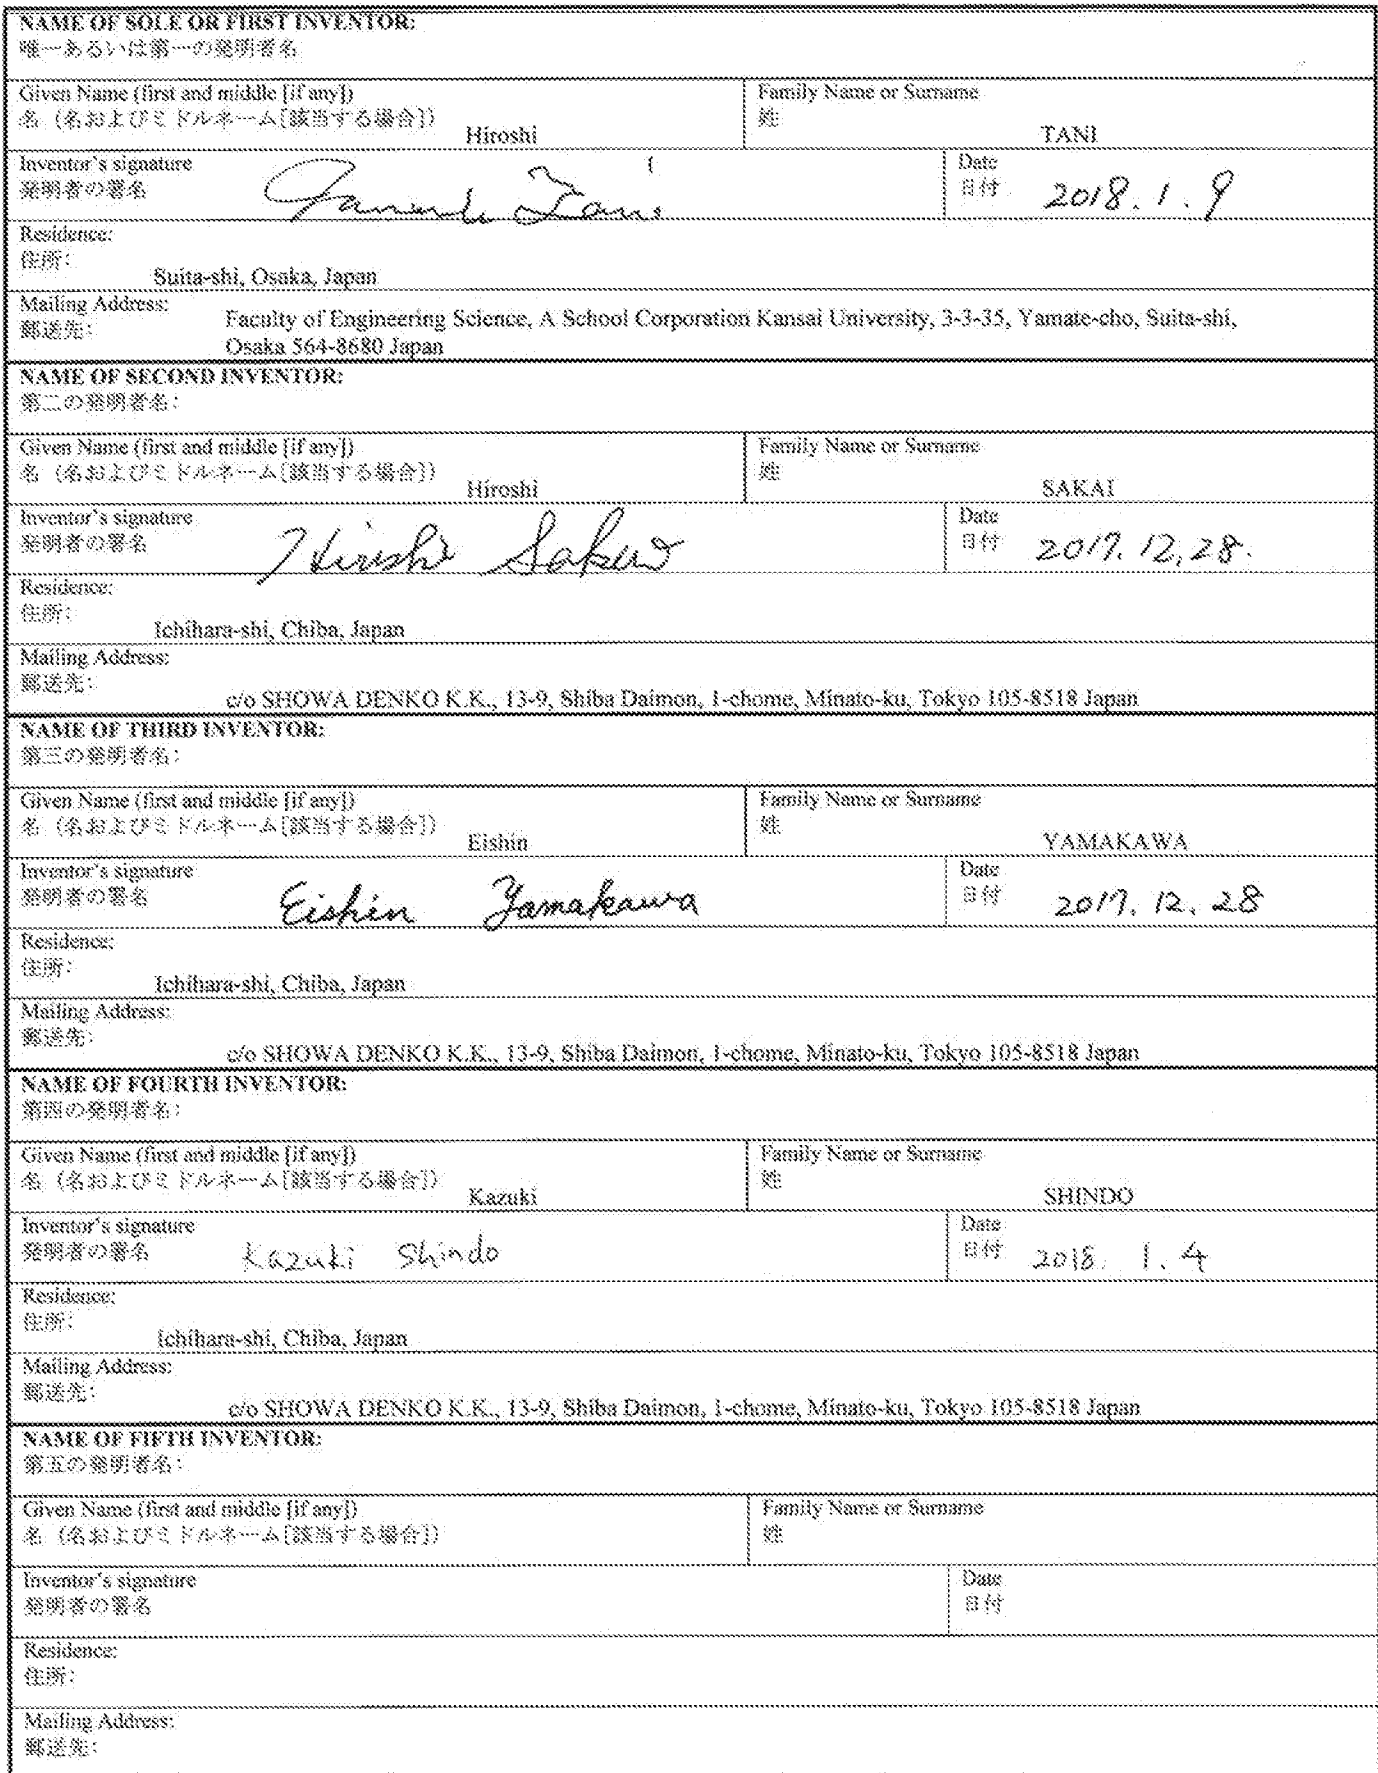 NAME OF SOLE OR FIRST INVENTOR:
唯一あるいは第一の発明者名
Given Name (first and middle [if any])
名 (名およびミドルネーム[該当する場合])
Hiroshi
Family Name or Surname
姓
TANI
Inventor's signature
発明者の署名
Tani
Date
日付
2018. 1. 9
Residence:
住所:
Suita-shi, Osaka, Japan
Mailing Address:
郵送先:
Faculty of Engineering Science, A School Corporation Kansai University, 3-3-35, Yamate-cho, Suita-shi,
Osaka 564-8680 Japan
NAME OF SECOND INVENTOR:
第二の発明者名:
Given Name (first and middle [if any])
名 (名およびミドルネーム[該当する場合])
Hiroshi
Family Name or Surname
姓
SAKAI
Inventor's signature
発明者の署名
Hiroshi Sakai
Date
日付
2017. 12, 28.
Residence:
住所:
Ichihara-shi, Chiba, Japan
Mailing Address:
郵送先:
c/o SHOWA DENKO K.K., 13-9, Shiba Daimon, 1-chome, Minato-ku, Tokyo 105-8518 Japan
NAME OF THIRD INVENTOR:
第三の発明者名:
Given Name (first and middle [if any])
名 (名およびミドルネーム[該当する場合])
Eishin
Family Name or Surname
姓
YAMAKAWA
Inventor's signature
発明者の署名
Eishin Yamakawa
Date
日付
2017. 12. 28
Residence:
住所:
Ichihara-shi, Chiba, Japan
Mailing Address:
郵送先:
c/o SHOWA DENKO K.K., 13-9, Shiba Daimon, 1-chome, Minato-ku, Tokyo 105-8518 Japan
NAME OF FOURTH INVENTOR:
第四の発明者名:
Given Name (first and middle [if any])
名 (名およびミドルネーム[該当する場合])
Kazuki
Family Name or Surname
姓
SHINDO
Inventor's signature
発明者の署名
Kazuki Shindo
Date
日付
2018. 1. 4
Residence:
住所:
Ichihara-shi, Chiba, Japan
Mailing Address:
郵送先:
c/o SHOWA DENKO K.K., 13-9, Shiba Daimon, 1-chome, Minato-ku, Tokyo 105-8518 Japan
NAME OF FIFTH INVENTOR:
第五の発明者名:
Given Name (first and middle [if any])
名 (名およびミドルネーム[該当する場合])
Family Name or Surname
姓
Inventor's signature
発明者の署名
Date
日付
Residence:
住所:
Mailing Address:
郵送先: